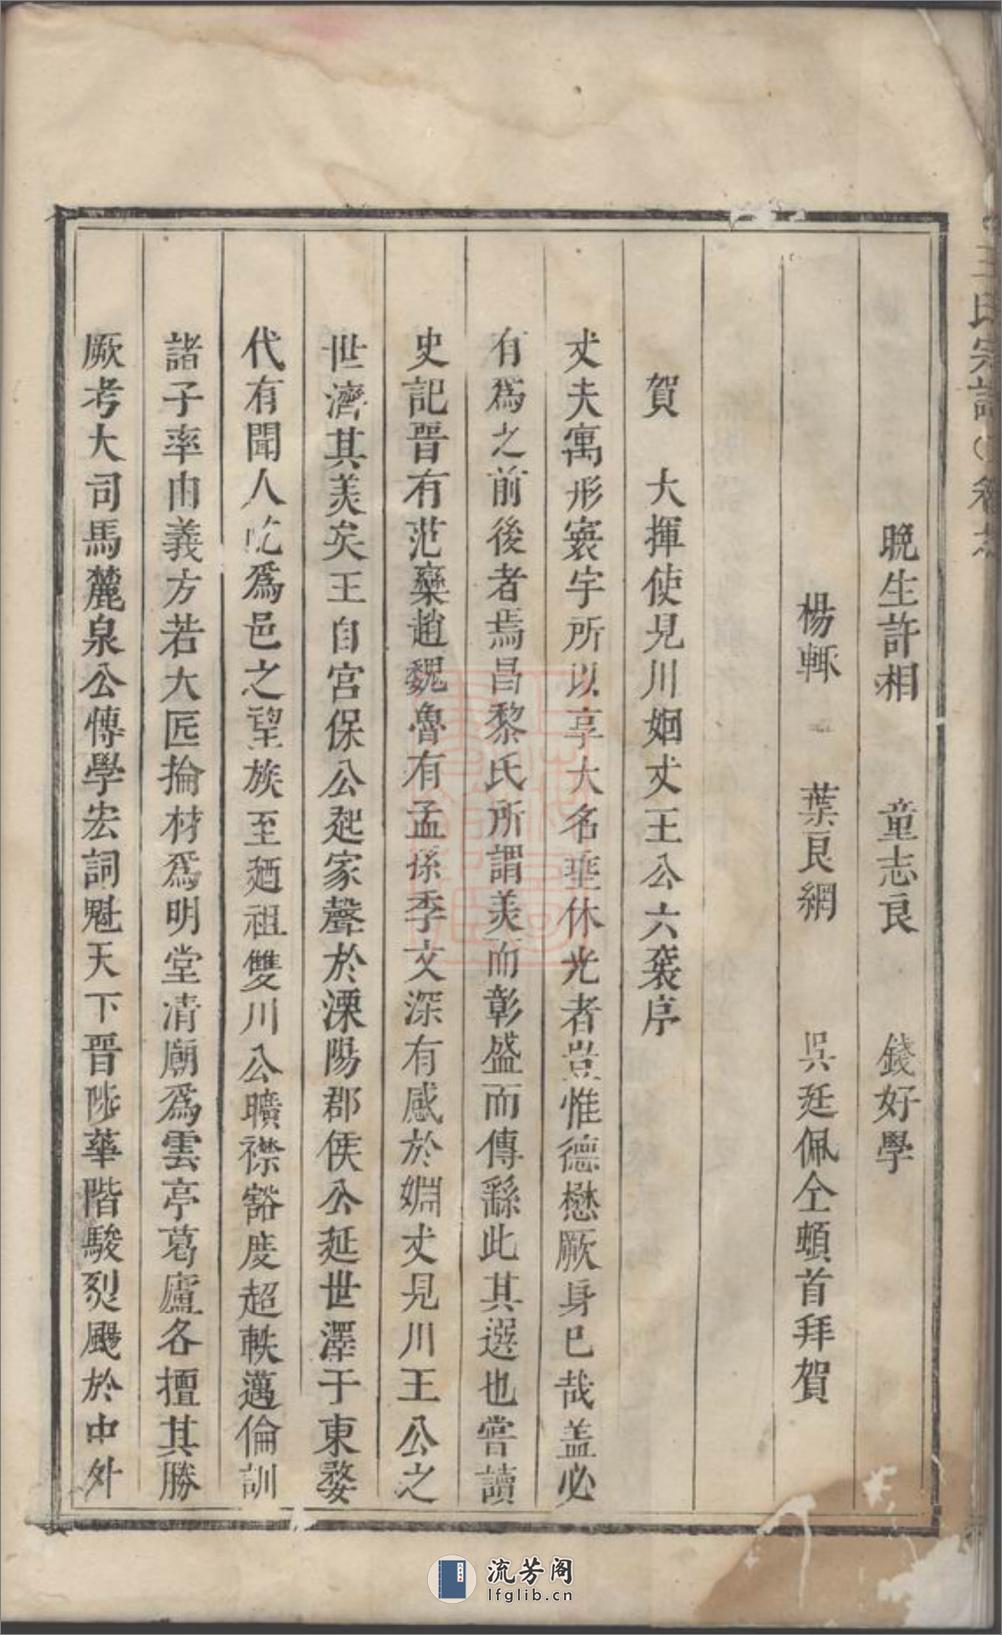 晚生許相　童志良　錢好學
楊輒　葉良網　吳廷佩仝頓首拜賀
賀　大揮使見川姻丈王公六袠序
丈夫寓形寰宇所以享大名垂休光者豈惟德懋厥身已哉蓋必
有爲之前後者焉昌黎氏所謂美而彰盛而傳繇此其選也嘗讀
史記晋有范欒趙魏魯有孟孫季文深有感於姻丈見川王公之
世濟其美矣王自宮保公起家聲於溧陽郡侯公延世澤于東婺
代有聞人屹爲邑之望族至廼祖雙川公曠襟豁度超軼邁倫訓
諸子率由義方若大匠掄材爲明堂清廟爲雲亭葛廬各擅其勝
厥考大司馬麓泉公傳學宏詞魁天下晋陟華階駿烈颺於中外
王氏宗譜
卷
流芳阁
lfglib.cn